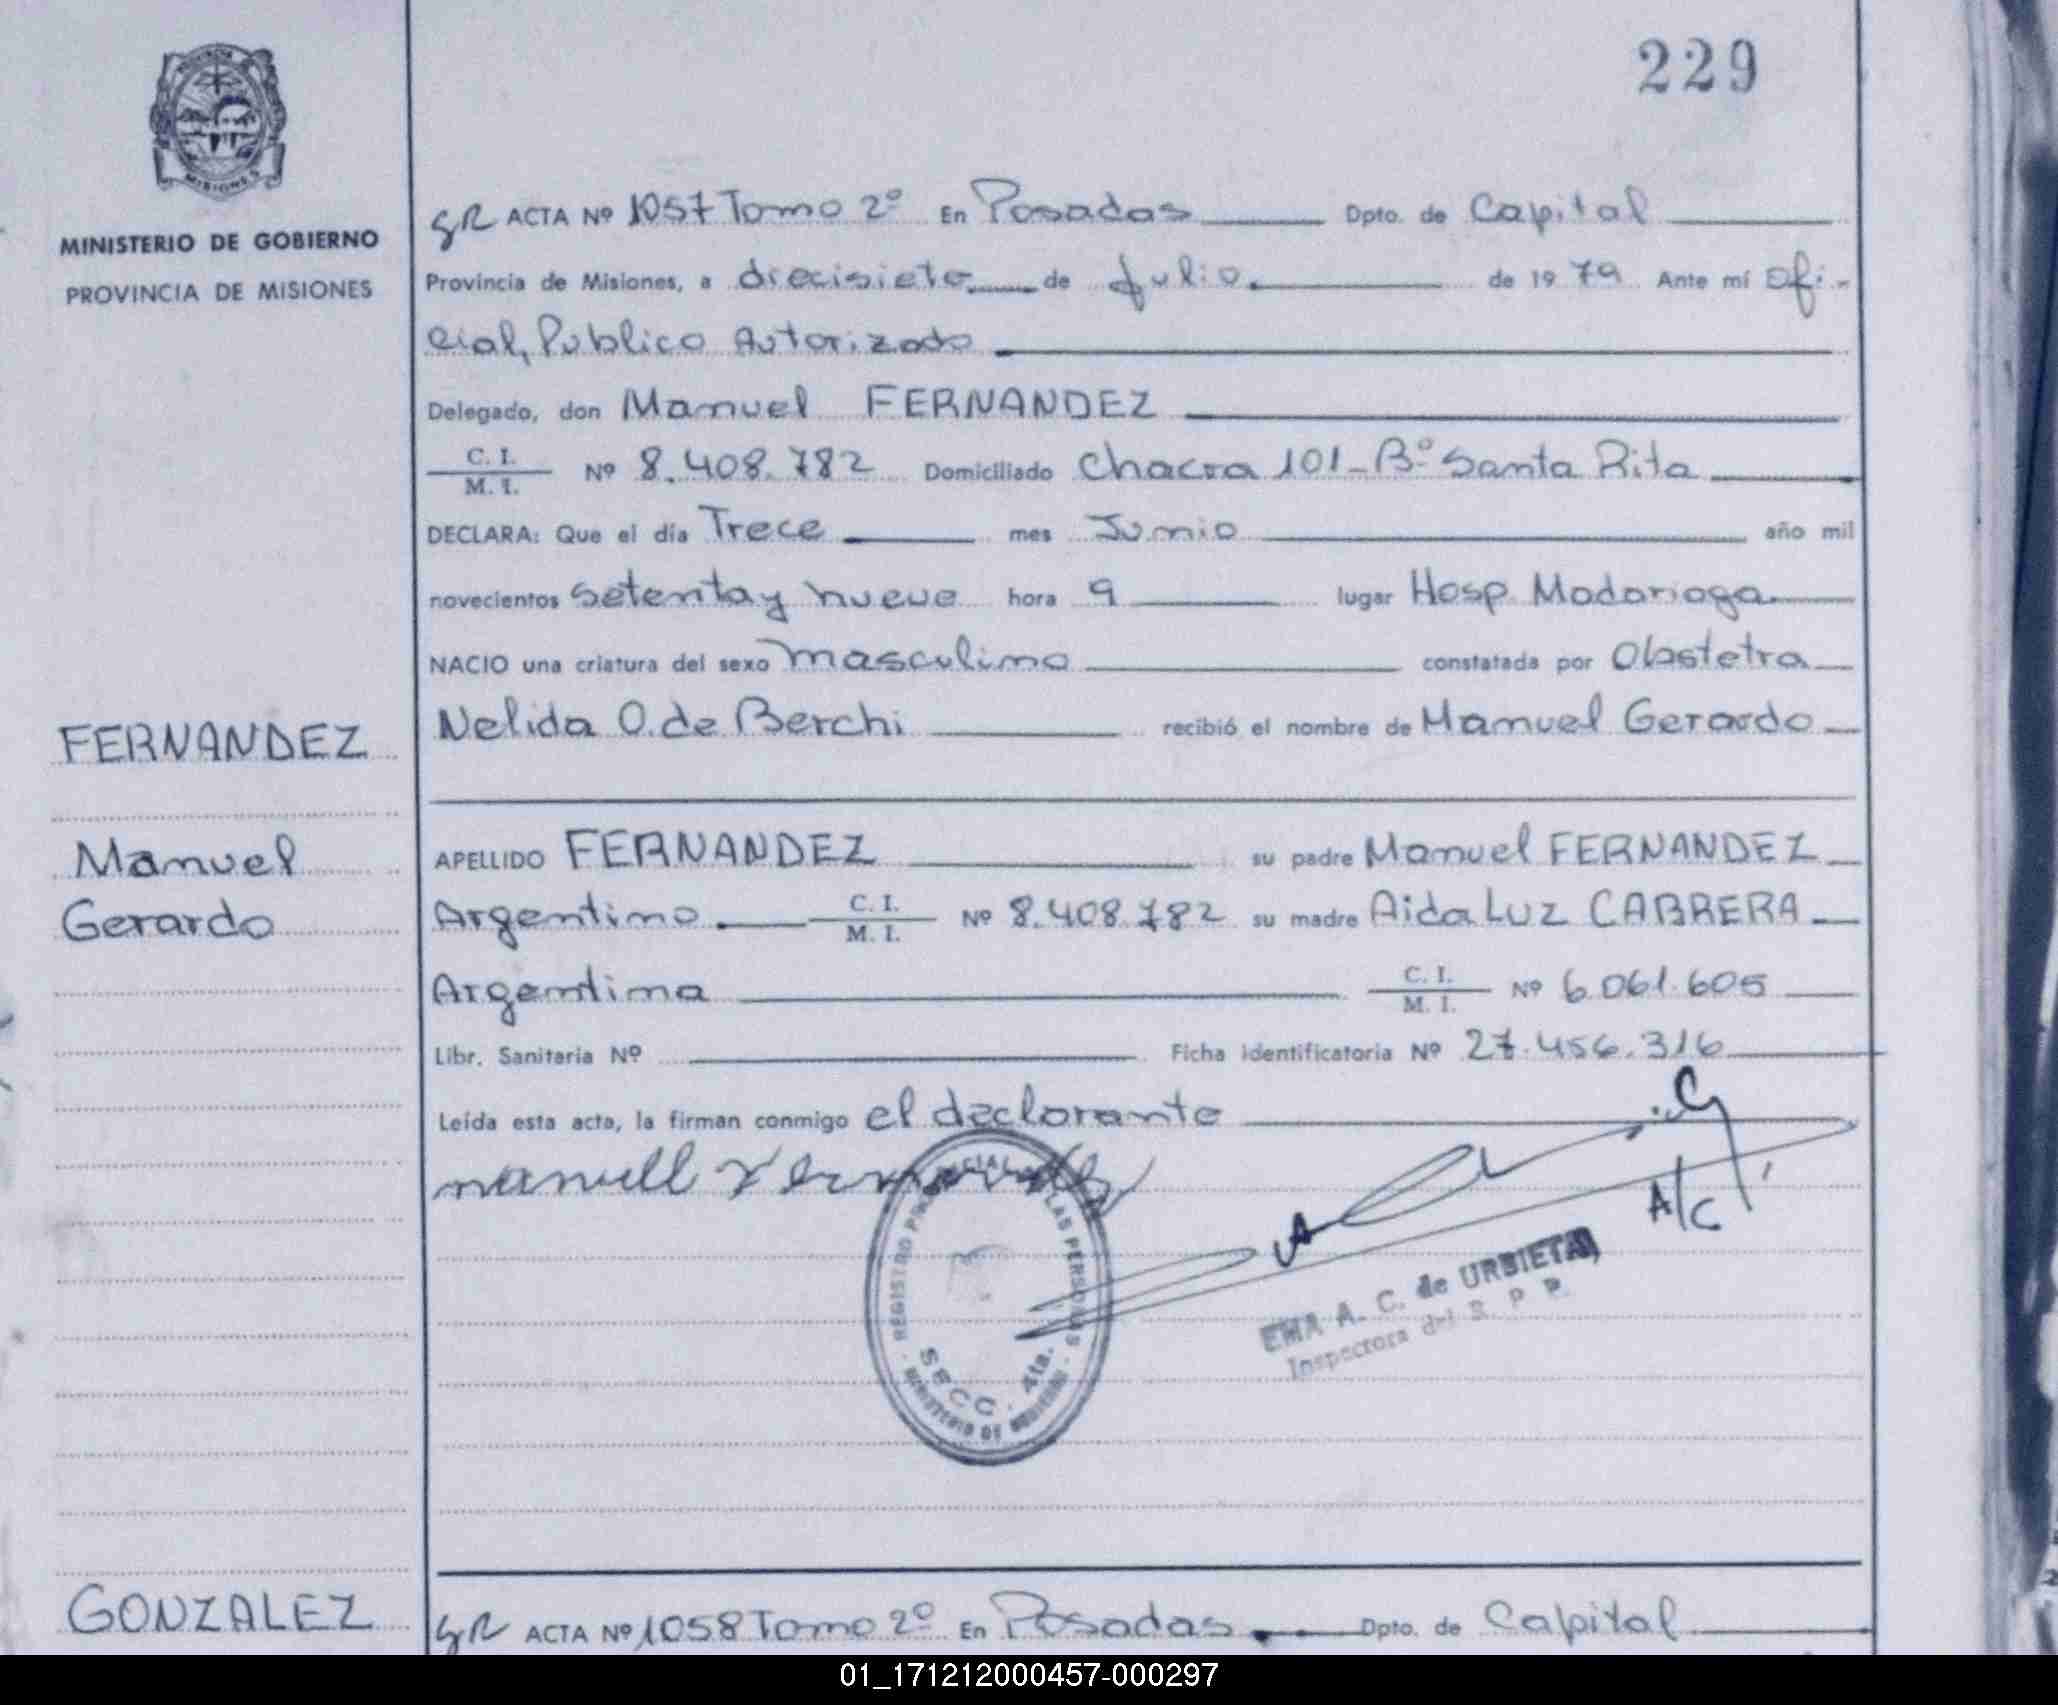 229
PROVINCIA
MISIONES
MINISTERIO DE GOBIERNO
PROVINCIA DE MISIONES
ACTA Nº 1057 Tomo 2º En Posadas Dpto. de Capital
Provincia de Misiones, a diecisiete de Julio de 1979 Ante mí Ofi-
cial, Publico Autorizado
Delegado, don Manuel FERNANDEZ
C. I.
M. I. Nº 8.408.782 Domiciliado Chacra 101 - Bº Santa Rita
DECLARA: Que el día Trece mes Junio año mil
novecientos setenta y nueve hora 9 lugar Hosp. Madariaga
NACIO una criatura del sexo masculino constatada por Obstetra
Nelida O. de Berchi recibió el nombre de Manuel Gerardo
FERNANDEZ
Manuel
Gerardo
APELLIDO FERNANDEZ su padre Manuel FERNANDEZ
Argentino C. I.
M. I. Nº 8.408.782 su madre Aida Luz CABRERA
Argentina C. I.
M. I. Nº 6.061.605
Libr. Sanitaria Nº Ficha identificatoria Nº 27.456.316
Leída esta acta, la firman conmigo el declarante
A/C
REGISTRO LAS PERSONAS
SECC. 4ta.
MINISTERIO DE GOBIERNO
EMA A. C. de URBIETA
Inspectora del R. P. P.
GONZALEZ
ACTA Nº 1058 Tomo 2º En Posadas Dpto. de Capital
01_171212000457-000297